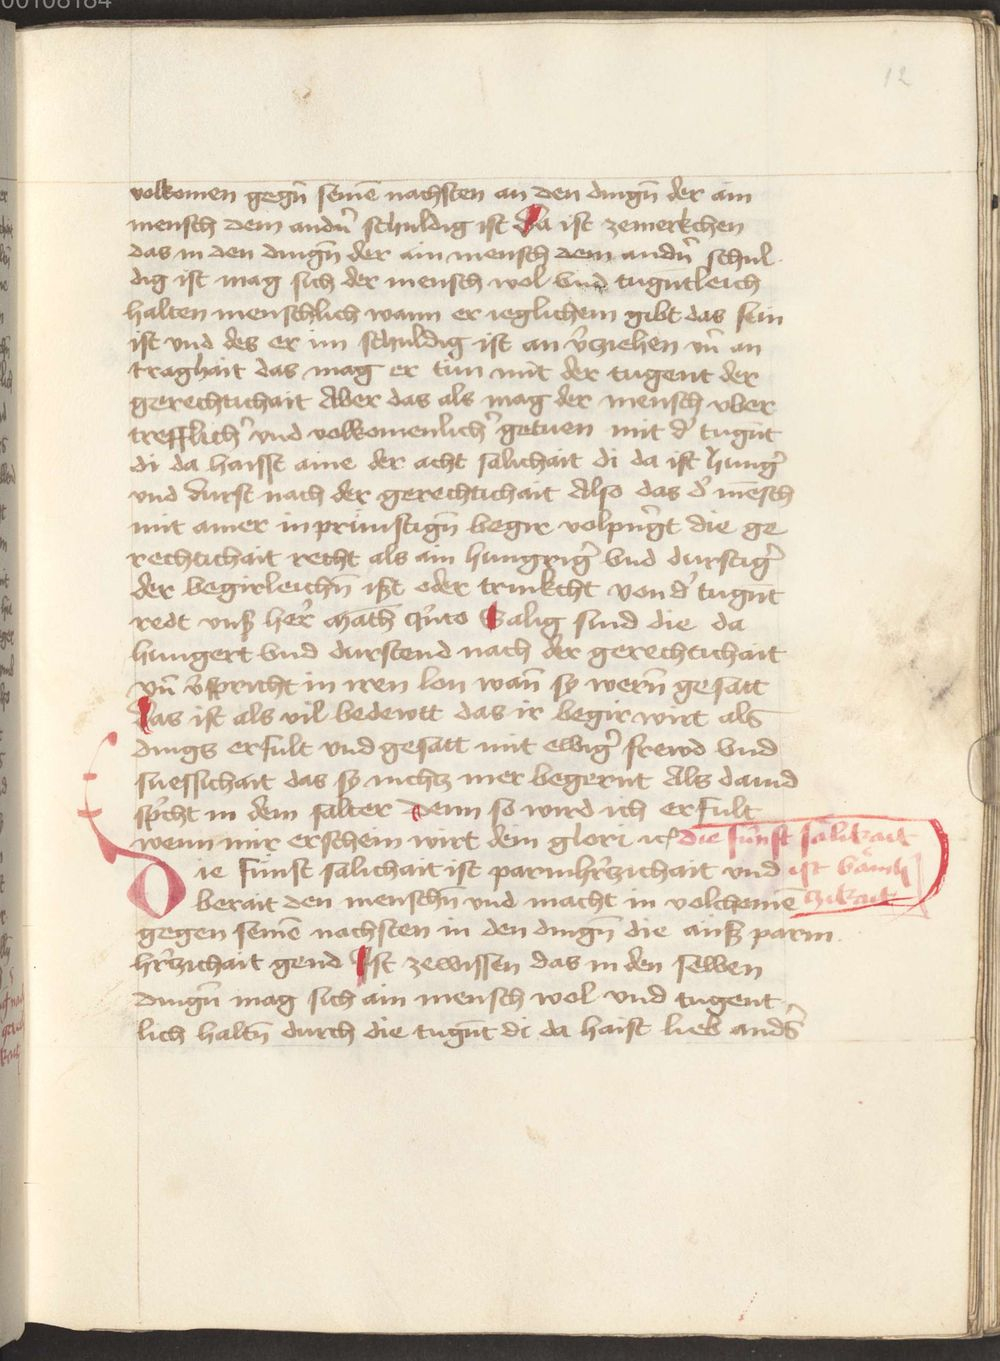 00108184
12
volkomen gegn̄ seinē nachsten an den dingn̄ der ain
mensch dem andn̄ schuldig ist Da ist zemerkchen
das in den dingn̄ der ain mensch dem andn̄ schul
dig ist mag sich der mensch wol vnd tugntleich
halten menschlich wann er ieglichem gibt das sein
ist vnd des er im schuldig ist an v̄cziehen vn̄ an
traghait das mag er tün mit der tugent der
gerechtichait Aber das als mag der mensch vber
trefflich̓ vnd volkomenlich̓ getuen mit d̓ tugnt
di da haisst aine der acht salichait di da ist hung̓
vnd durst nach der gerechtichait Also das d̓ mēsch
mit ainer inprünstign̄ begir volpringt die ge
rechtichait recht als ain hungrig̓ vnd durstig̓
der begirleichn̄ isst oder trinkcht von d̓ tugnt
redt vnſß her̓ Math̄ Qn̄to Salig sind die da
hungert vnd durstend nach der gerechtichait
vn̄ v̄spricht in iren lon wan̄ sy wern̄ gesatt
Das ist als vil bedewtt das ir begir wirt als
dings erfult vnd gesatt mit ewig̓ frewd vnd
suessichait das sy nichtz mer begernt Als dauid
sp̓cht in dem salter Denn so wird ich erfult
wenn mir erschein wirt dein glori ꝛc̄ die fünft sälikait
Die Fünfft salichait ist parmh̓czichait vnd ist bärmh
berait den menschn̄ vnd macht in volchomē czikait
gegen seinē nachsten in den dingn̄ die auß parm
h̓czichait gend Ist zewissen das in den selben
dingn̄ mag sich ain mensch wol vnd tugent
lich haltn̄ durch die tugnt di da haist lieb ands̓